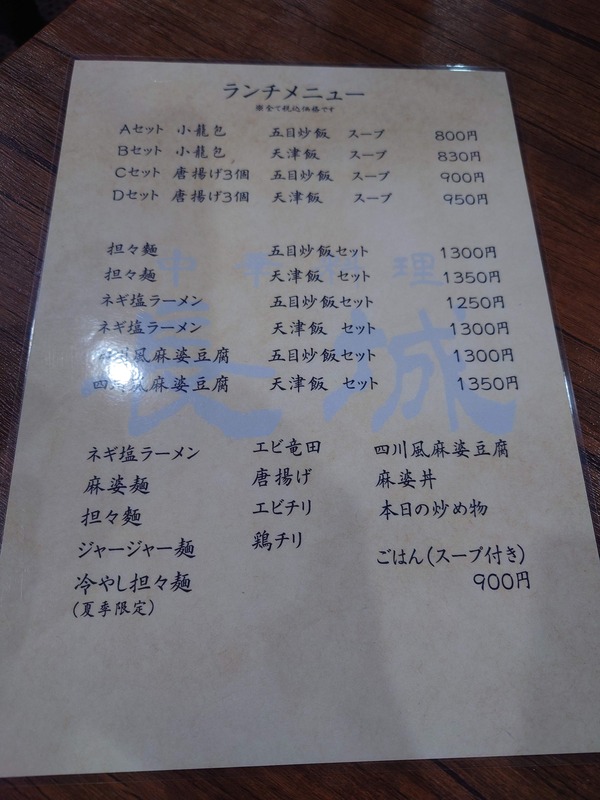 ランチメニュー
※全て税込価格です
Aセット 小龍包 五目炒飯 スープ 800円
Bセット 小龍包 天津飯 スープ 830円
Cセット 唐揚げ3個 五目炒飯 スープ 900円
Dセット 唐揚げ3個 天津飯 スープ 950円
中華料理
長城
担々麺 五目炒飯セット 1300円
担々麺 天津飯セット 1350円
ネギ塩ラーメン 五目炒飯セット 1250円
ネギ塩ラーメン 天津飯 セット 1300円
四川風麻婆豆腐 五目炒飯セット 1300円
四川風麻婆豆腐 天津飯 セット 1350円
ネギ塩ラーメン エビ竜田 四川風麻婆豆腐
麻婆麺 唐揚げ 麻婆丼
担々麺 エビチリ 本日の炒め物
ジャージャー麺 鶏チリ ごはん(スープ付き)
冷やし担々麺 900円
(夏季限定)